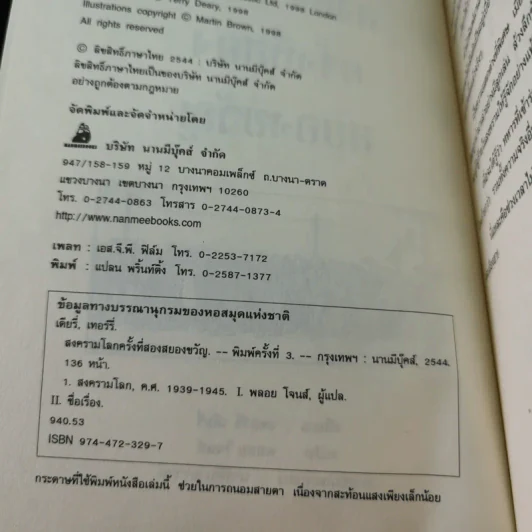 Terry Deary, 1998
Illustrations copyright © Martin Brown, 1998
All rights reserved
© ลิขสิทธิ์ภาษาไทย 2544 : บริษัท นานมีบุ๊คส์ จำกัด
ลิขสิทธิ์ภาษาไทยเป็นของบริษัท นานมีบุ๊คส์ จำกัด
อย่างถูกต้องตามกฎหมาย
จัดพิมพ์และจัดจำหน่ายโดย
บริษัท นานมีบุ๊คส์ จำกัด
947/158-159 หมู่ 12 บางนาคอมเพล็กซ์ ถ.บางนา-ตราด
แขวงบางนา เขตบางนา กรุงเทพฯ 10260
โทร. 0-2744-0863 โทรสาร 0-2744-0873-4
http://www.nanmeebooks.com
เพลท : เอส.จี.พี. ฟิล์ม โทร. 0-2253-7172
พิมพ์ : แปลน พริ้นท์ติ้ง โทร. 0-2587-1377
ข้อมูลทางบรรณานุกรมของหอสมุดแห่งชาติ
เดียรี่, เทอร์รี่.
สงครามโลกครั้งที่สองสยองขวัญ. -- พิมพ์ครั้งที่ 3. -- กรุงเทพฯ : นานมีบุ๊คส์, 2544.
136 หน้า.
1. สงครามโลก, ค.ศ. 1939-1945. I. พลอย โจนส์, ผู้แปล.
II. ชื่อเรื่อง.
940.53
ISBN 974-472-329-7
กระดาษที่ใช้พิมพ์หนังสือเล่มนี้ ช่วยในการถนอมสายตา เนื่องจากสะท้อนแสงเพียงเล็กน้อย